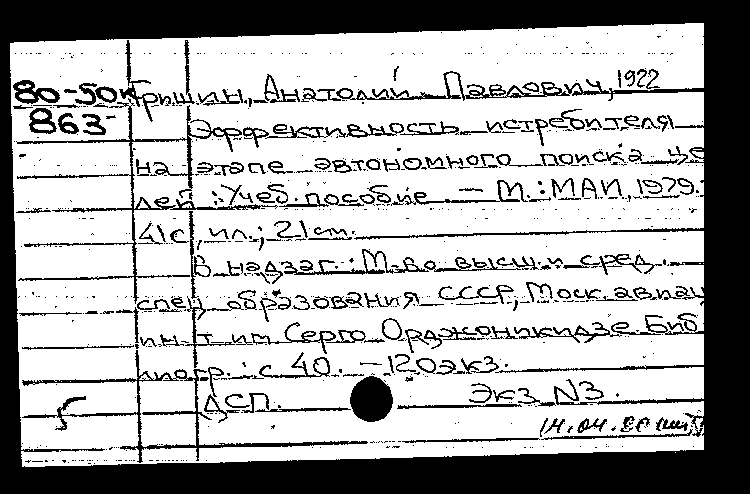 80-50к Гришин, Анатолий Павлович, 1922
863 Эффективность истребителя
на этапе автономного поиска це
лей : Учеб. пособие. — М.: МАИ, 1979.
41с, ил.; 21 см.
В надзаг.: М-во высш. и сред.
спец. образования СССР, Моск. авиац
ин-т им Серго Орджоникидзе. Биб
лиогр.: с 40. — 120 экз.
ДСП. Экз N3.
14.04.80